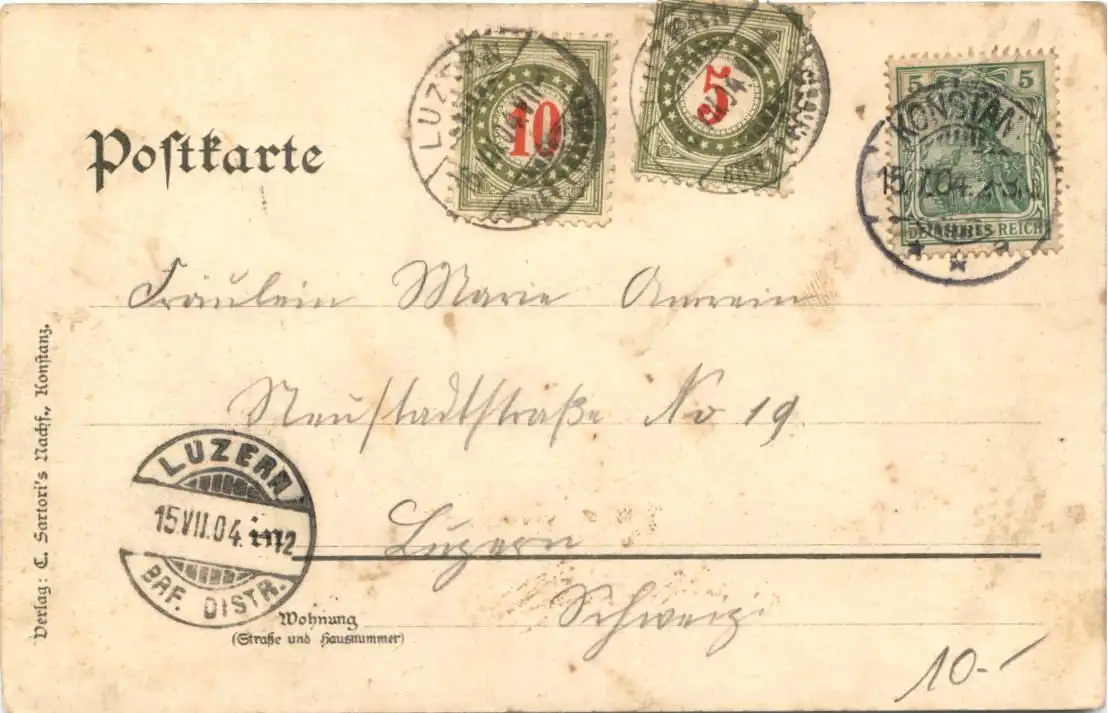 LUZERN
10
5
5 5
KONSTAN
15.7.04.
REICH
Postkarte
Fräulein Marie Amrein
Neustadtstraße No 19.
Luzern
Schweiz
LUZERN
15.VII.04. 12
BRF. DISTR.
Wohnung
(Straße und Hausnummer)
Verlag: C. Sartori's Nachf., Konstanz.
10.-